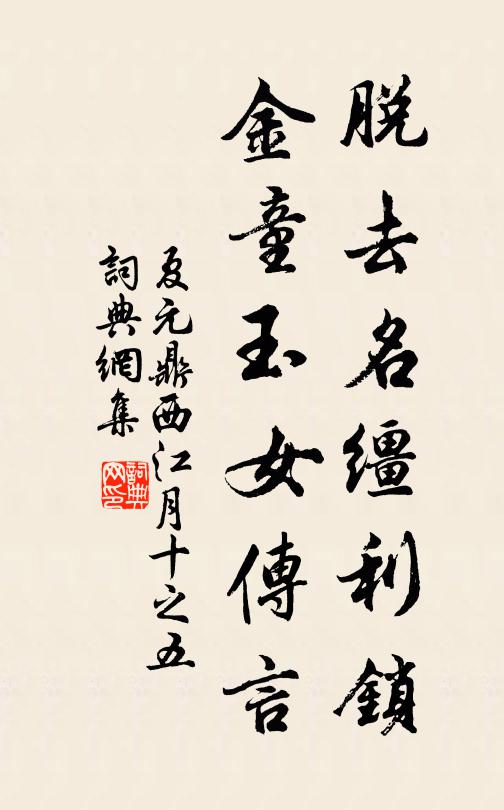 脫去名韁利鎖
金童玉女傳言
夏元鼎西江月十之五
詞典網集
詞典網印